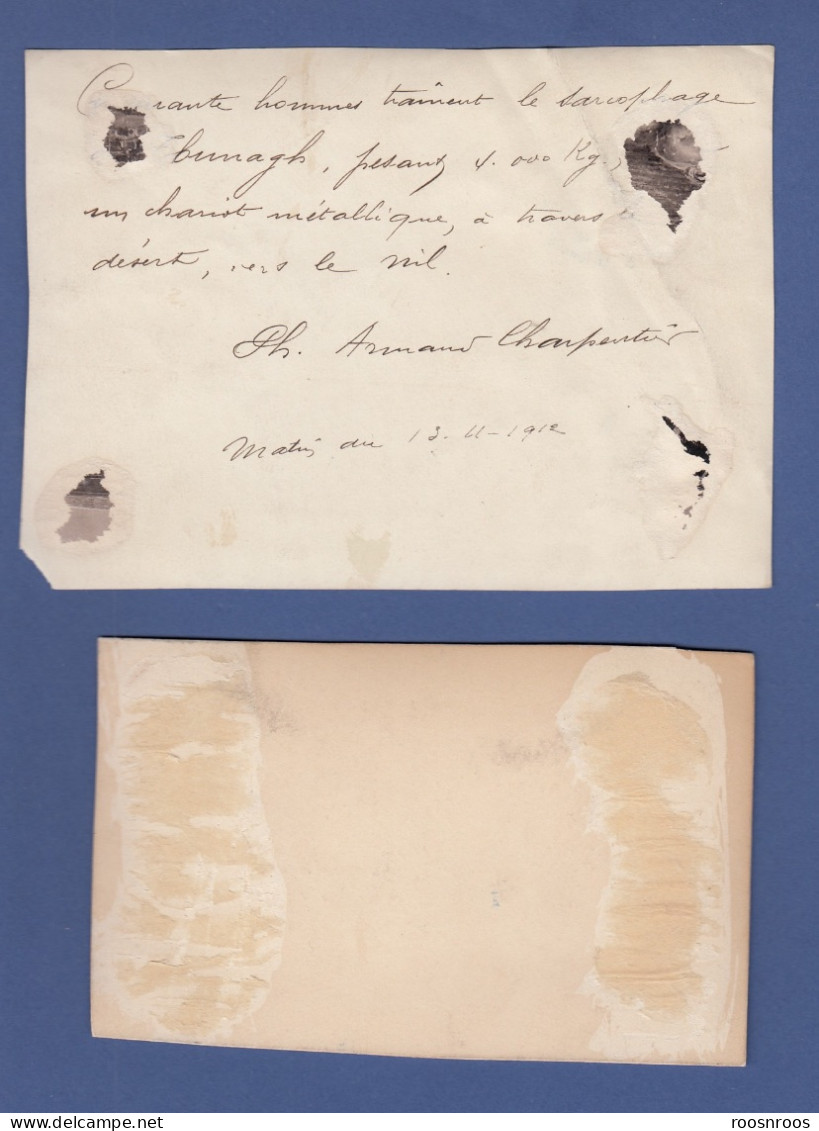 rante hommes traînent le sarcophage
bunagh, pesant 4.000 Kg,
un chariot métallique, à travers
désert, vers le Nil.
Ph. Armand Charpentier
Matin du 13-11-1912
roosnroos